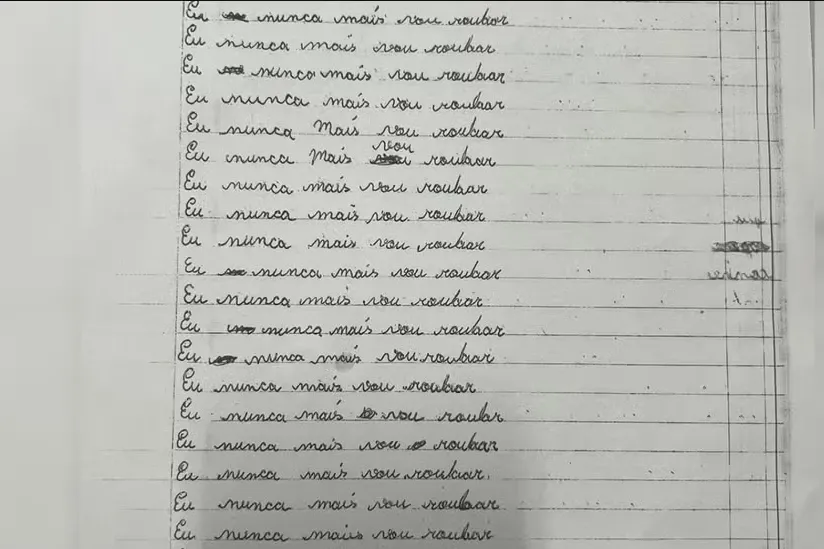 Eu nunca mais vou roubar
Eu nunca mais vou roubar
Eu nunca mais vou roubar
Eu nunca mais vou roubar
Eu nunca Mais vou roubar
Eu nunca Mais vou roubar
Eu nunca mais vou roubar
Eu nunca mais vou roubar
Eu nunca mais vou roubar
Eu nunca mais vou roubar
Eu nunca mais vou roubar
Eu nunca mais vou roubar
Eu nunca mais vou roubar
Eu nunca mais vou roubar
Eu nunca mais vou roubr
Eu nunca mais vou roubar
Eu nunca mais vou roubar.
Eu nunca mais vou roubar
Eu nunca mais vou roubar